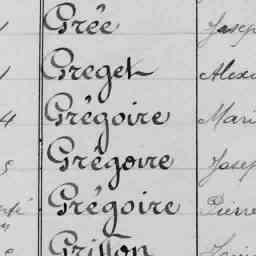 Grée Josep
Greget Alexi
4 Grégoire Mari
Grégoire Josep
Grégoire Pierre
Grillon